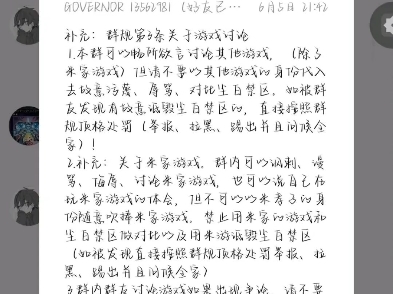 GOVERNOR 13562981 (好友已… 6月5日 21:42
补充：群规第3条关于游戏讨论
1.本群可以畅所欲言讨论其他游戏，（除了
米家游戏）但请不要以其他游戏的身份代入
去故意污蔑、辱骂、对比生日禁区，如被群
友发现有故意诋毁生日禁区的，直接按照群
规顶格处罚（举报、拉黑、踢出并且问候全
家）！
2.补充：关于米家游戏，群内可以讽刺、谩
骂、侮辱、讨论米家游戏，也可以说自己在
玩米家游戏的体会，但不可以以米孝子的身
份随意吹捧米家游戏，禁止用米家的游戏和
生日禁区做对比以及用米游诋毁生日禁区
（如被发现直接按照群规顶格处罚举报、拉
黑、踢出并且问候全家）
3.群内群友讨论游戏如果出现争论，请不要